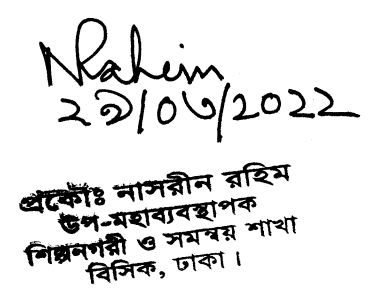 NRahim
২৯/০৩/2022
প্রকৌঃ নাসরীন রহিম
উপ-মহাব্যবস্থাপক
শিল্পনগরী ও সমন্বয় শাখা
বিসিক, ঢাকা।